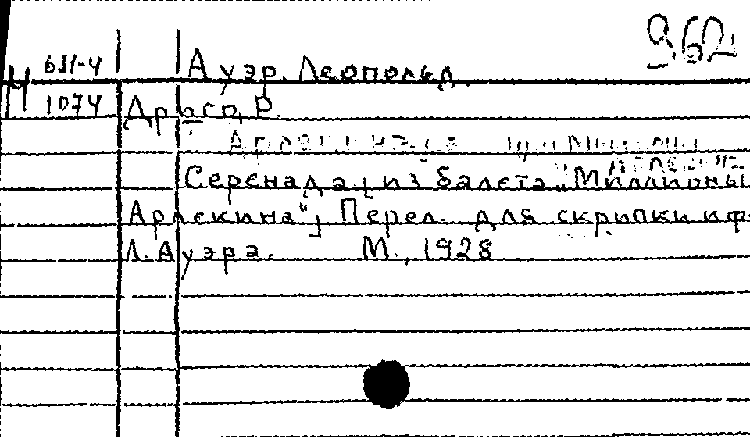 962
Н 611-4
1074
Ауэр, Леопольд.
Дриго, Р.
Серенада [из балета "Миллионы
Арлекина"] Перел. для скрипки и ф-
Л. Ауэра. М., 1928